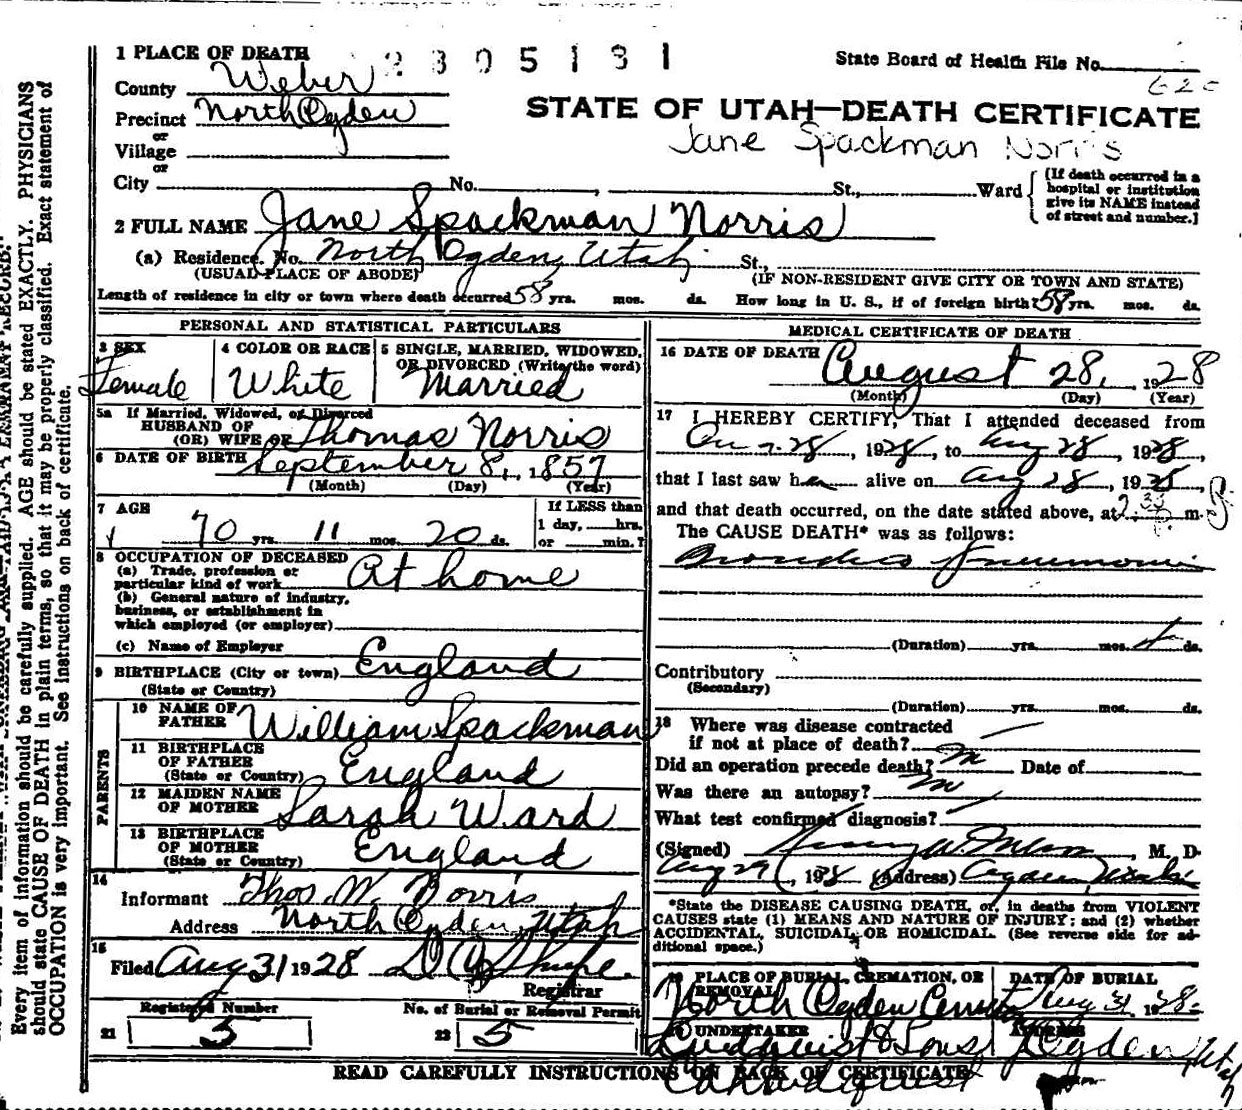 1 PLACE OF DEATH 2305131 State Board of Health File No.
County Weber
STATE OF UTAH—DEATH CERTIFICATE
Precinct North Ogden
Jane Spackman Norris
or
Village
or
City No. , St., Ward
[If death occurred in a
hospital or institution
give its NAME instead
of street and number.]
2 FULL NAME Jane Spackman Norris
(a) Residence. No. North Ogden, Utah St.,
(USUAL PLACE OF ABODE) (IF NON-RESIDENT GIVE CITY OR TOWN AND STATE)
Length of residence in city or town where death occurred 58 yrs. mos. ds. How long in U. S., if of foreign birth? 58 yrs. mos. ds.
PERSONAL AND STATISTICAL PARTICULARS
3 SEX 4 COLOR OR RACE 5 SINGLE, MARRIED, WIDOWED,
OR DIVORCED (Write the word)
Female White Married
5a If Married, Widowed, or Divorced
HUSBAND OF
(OR) WIFE OF Thomas Norris
6 DATE OF BIRTH September 8, 1857
(Month) (Day) (Year)
7 AGE
If LESS than
1 day, hrs.
or min.?
70 yrs. 11 mos. 20 ds.
8 OCCUPATION OF DECEASED
(a) Trade, profession or
particular kind of work At home
(b) General nature of industry,
business, or establishment in
which employed (or employer)
(c) Name of Employer
9 BIRTHPLACE (City or town) England
(State or Country)
PARENTS
10 NAME OF
FATHER William Spackman
11 BIRTHPLACE
OF FATHER
(State or Country) England
12 MAIDEN NAME
OF MOTHER Sarah Ward
13 BIRTHPLACE
OF MOTHER
(State or Country) England
14
Informant Thos. W. Norris
Address North Ogden, Utah
15
Filed Aug 31 1928
Registrar
Registered Number No. of Burial or Removal Permit
21 5 22 5
MEDICAL CERTIFICATE OF DEATH
16 DATE OF DEATH August 28, 1928
(Month) (Day) (Year)
17 I HEREBY CERTIFY, That I attended deceased from
Aug. 28, 1928, to Aug 28, 1928
that I last saw her alive on Aug 28, 1928,
and that death occurred, on the date stated above, at 2:30 P m.
The CAUSE DEATH* was as follows:
Broncho Pneumonia
(Duration) yrs. mos. ds.
Contributory
(Secondary)
(Duration) yrs. mos. ds.
18 Where was disease contracted
if not at place of death?
Did an operation precede death? no Date of
Was there an autopsy? no
What test confirmed diagnosis?
(Signed) , M. D.
Aug 29, 1928 (Address) Ogden, Utah
*State the DISEASE CAUSING DEATH, or, in deaths from VIOLENT
CAUSES state (1) MEANS AND NATURE OF INJURY; and (2) whether
ACCIDENTAL, SUICIDAL OR HOMICIDAL. (See reverse side for ad-
ditional space.)
19 PLACE OF BURIAL, CREMATION, OR
REMOVAL
North Ogden
DATE OF BURIAL
Aug 31 1928
20 UNDERTAKER
Lindquist & Sons
ADDRESS
Ogden Utah
READ CAREFULLY INSTRUCTIONS ON BACK OF CERTIFICATE
Every item of information should be carefully supplied. AGE should be stated EXACTLY. PHYSICIANS
should state CAUSE OF DEATH in plain terms, so that it may be properly classified. Exact statement of
OCCUPATION is very important. See instructions on back of certificate.